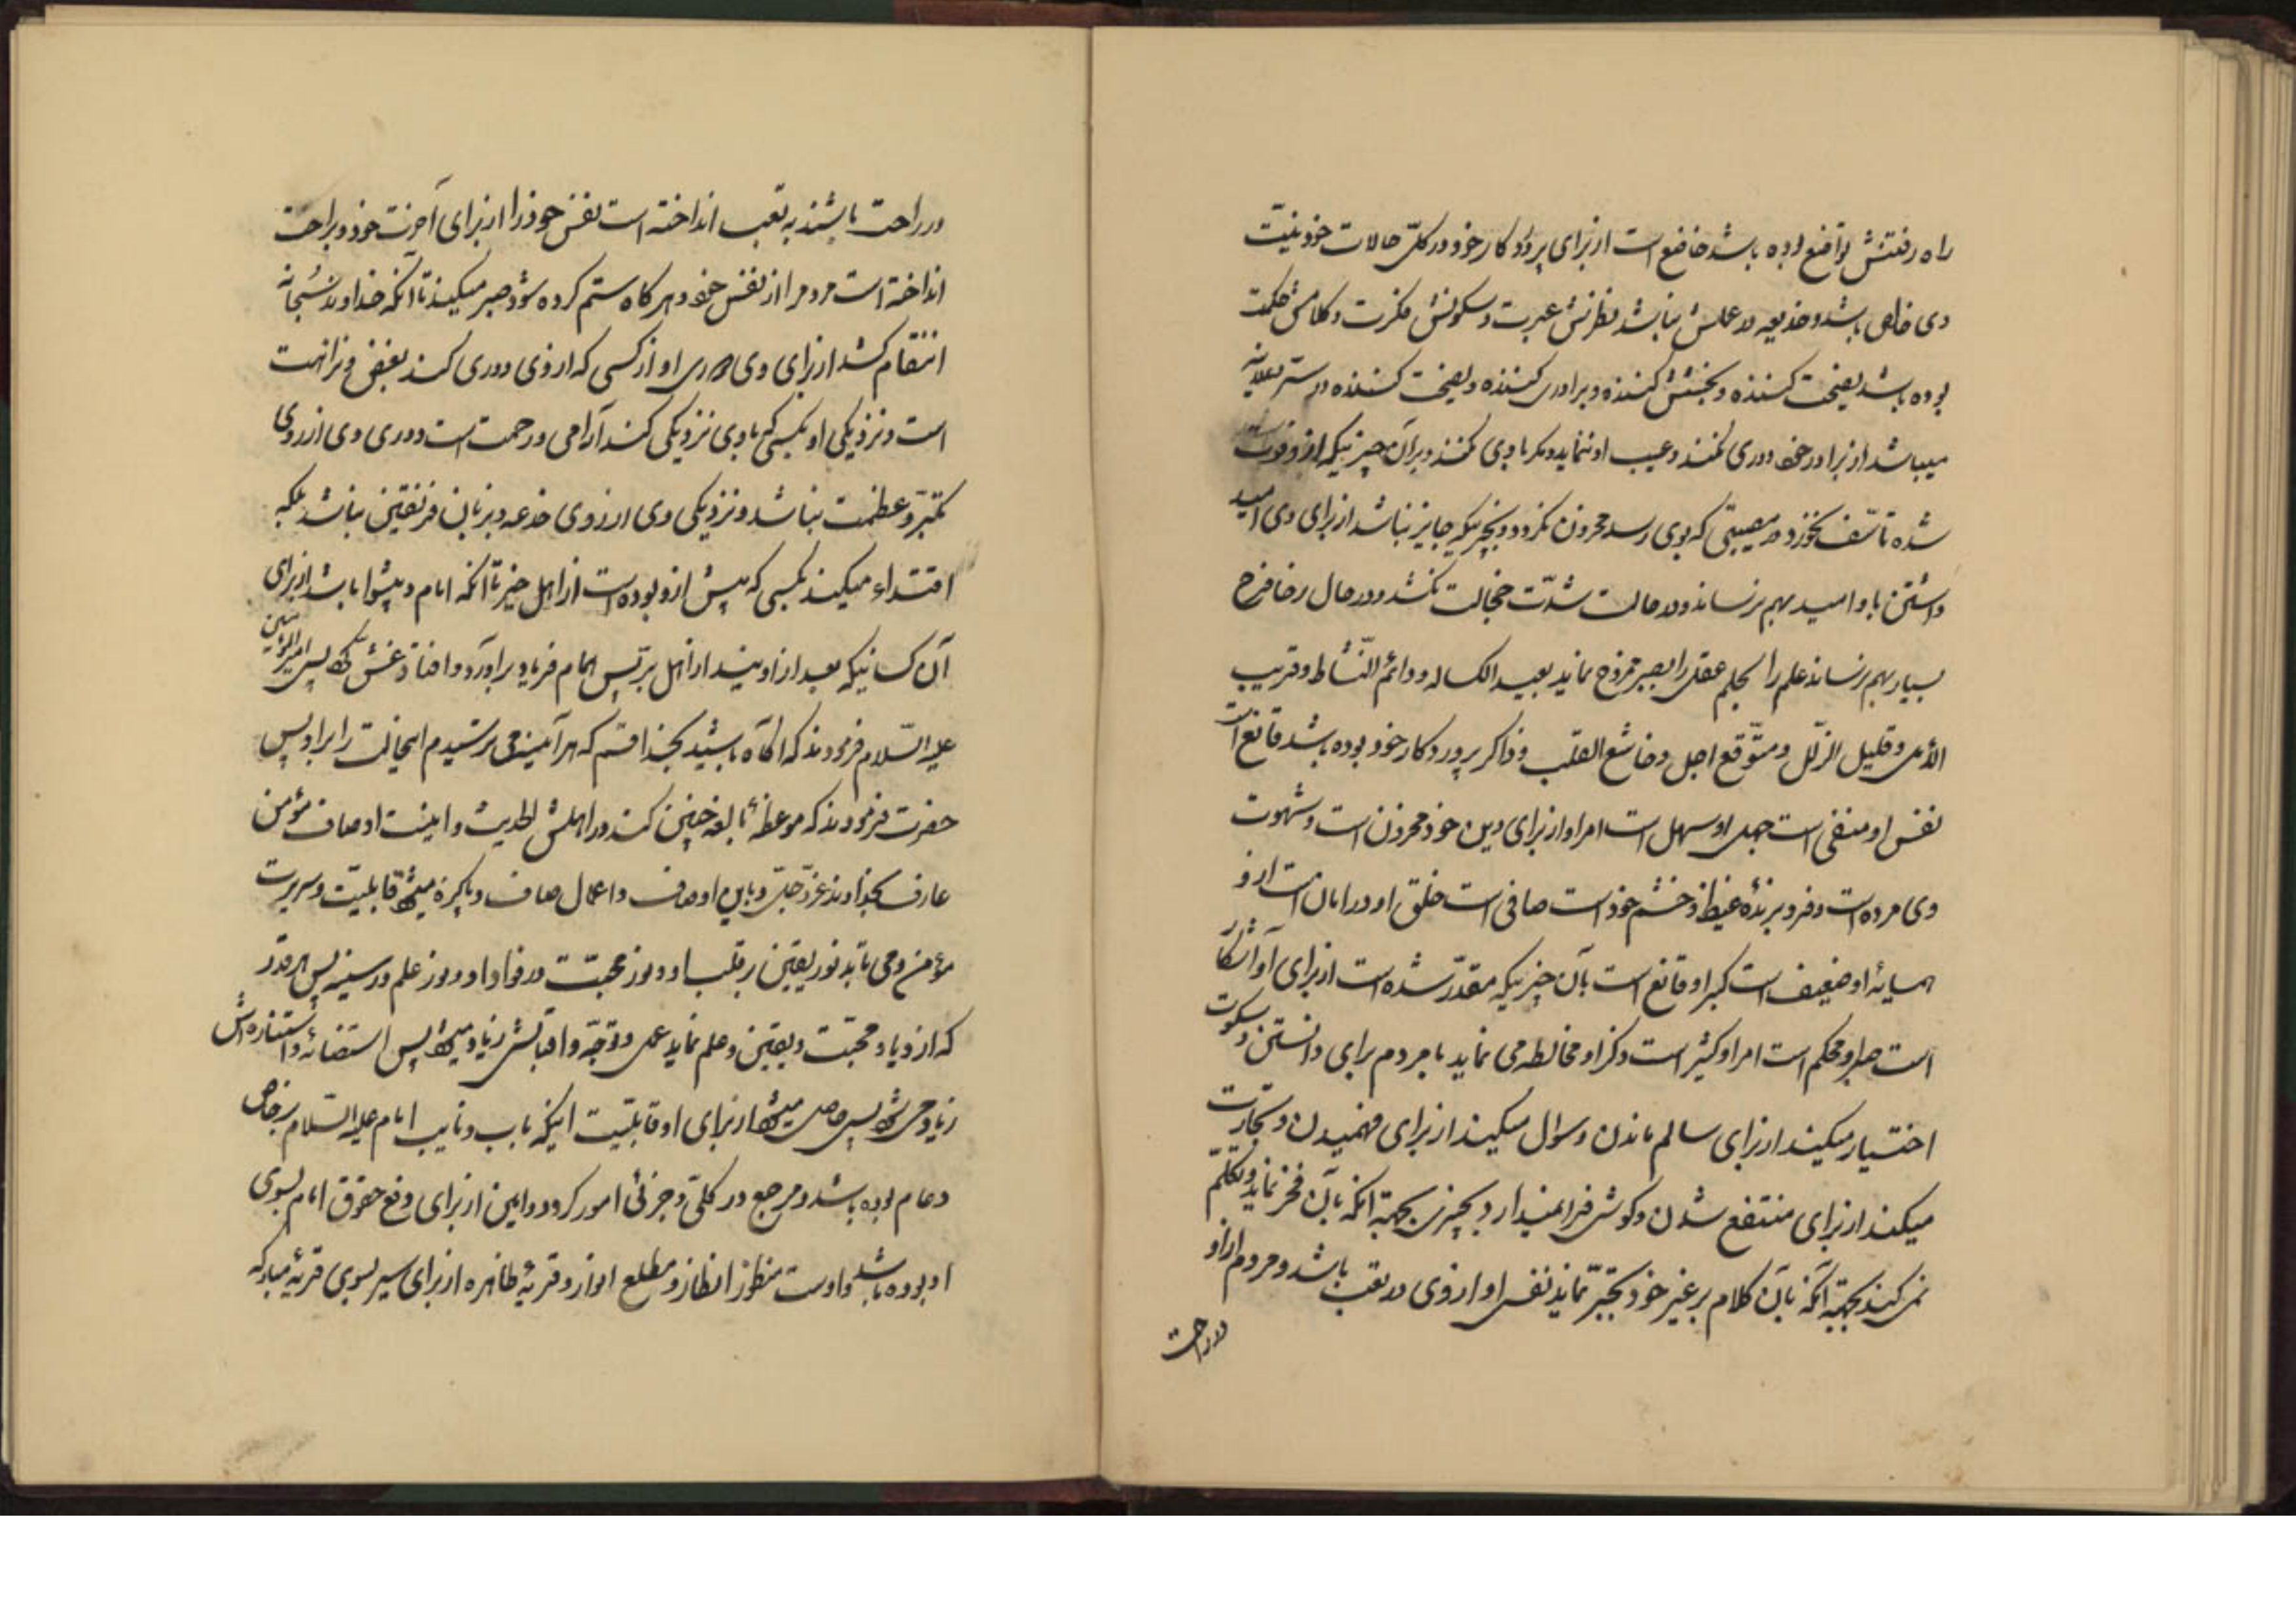 راه رفتنش تواضع بوده باشد خاضع است از برای پروردکار خود در کلّ حالات خود نیّت
وی خالص باشد و خدیعه در عملش نباشد نظرش عبرت و سکوتش فکرت و کلامش حکمت
بوده باشد نصیحت کننده و بخشش کننده و برادری کننده و نصیحت کننده در سرّ و علانیه
میباشد از برادر خود دوری نکند و عیب او ننماید و مکر با وی نکند و بر آن چیزیکه از او فوت
شده تاسّف نخورد و مصیبتی که بوی رسد محزون نکردد و بچیزیکه جایز نباشد از برای وی امید
داشتن باو امید بهم نرساند و در حالت شدّت خجالت نکشد و در حال رخا فرح
بسیار بهم نرساند علم را بحلم عقل را بصبر ممزوج نماید بعید الکساله و دائم النّشاط و قریب
الأمل و قلیل الزلل و متوّقع اجل و خاشع القلب و ذاکر پروردکار خود بوده باشد قانع است
نفس او منفی است جهل او سهل است امر او از برای دین خود محزون است و شهوت
وی مرده است و فرو برندهٔ غیظ و خشم خود است صافی است خلق او در امان است از او
همسایهٔ او ضعیف است کبر او قانع است بآن چیزیکه مقدّر شده است از برای او آشکار
است صبر او محکم است امر او کثیر است ذکر او مخالطه می نماید با مردم برای دانستن و سکوت
اختیار میکند از برای سالم ماندن و سوال میکند از برای فهمیدن و تجارت
میکند از برای منتفع شدن و کوش فرا نمیدارد بچیزی بجهة آنکه بآن فخر نماید و تکلّم
نمی کند بجهة آنکه بآن کلام بر غیر خود تجبّر نماید نفس او از وی در تعب باشد و مردم از او
در راحت
در راحت باشند به تعب انداخته است نفس خود را از برای آخرت خود و براحت
انداخته است مردم را از نفس خود و هر کاه ستم کرده شود صبر میکند تا آنکه خداوند سُبحانه
انتقام کشد از برای وی دوری او از کسی که از وی دوری کند بغض و نزاهت
است و نزدیکی او بکسی که با وی نزدیکی کند آرامی و رحمت است دوری وی از روی
تکبّر و عظمت نباشد و نزدیکی وی از روی خدعه و بزبان فریفتن نباشد بلکه
اقتداء میکند بکسی که پیش از او بوده است از اهل خیر تا آنکه امام و پیشوا باشد از برای
آن کسانیکه بعد از او میند از اهل برّ پس همام فریاد برآورد و افتاد غش کرد پس امیرالمؤمنین
علیه السّلام فرمودند که آکاه باشید بخدا قسم که هر آینه می ترسیدم این حالت را بر او پس
حضرت فرمودند که موعظهٔ بالغه چنین کند در اهلش الحدیث و اینست اوصاف مؤمن
عارف بخداوند عزّ و جلّ و باین اوصاف و اعمال صاف و پاکیزه میشود قابلیّت و سریرت
مؤمن و می تابد نور یقین بر قلب او و نور محبّت در فواد او و نور علم در سینه پس هر قدر
که ازدیاد محبّت و یقین و علم نماید عمل و توجّه و اقبالش زیاد میشود پس استضائه و استناره اش
زیاد می شود پس حاصل میشود از برای او قابلیّت اینکه باب و نایب امام علیه السّلام بر خاص
و عام بوده باشد و مرجع در کلّی و جزئی امور کردد و امین از برای دفع حقوق امام بسوی
او بوده باشد و اوست منظور انظار و مطلع انوار و قریهٔ ظاهره از برای سیر بسوی قریهٔ مبارکه